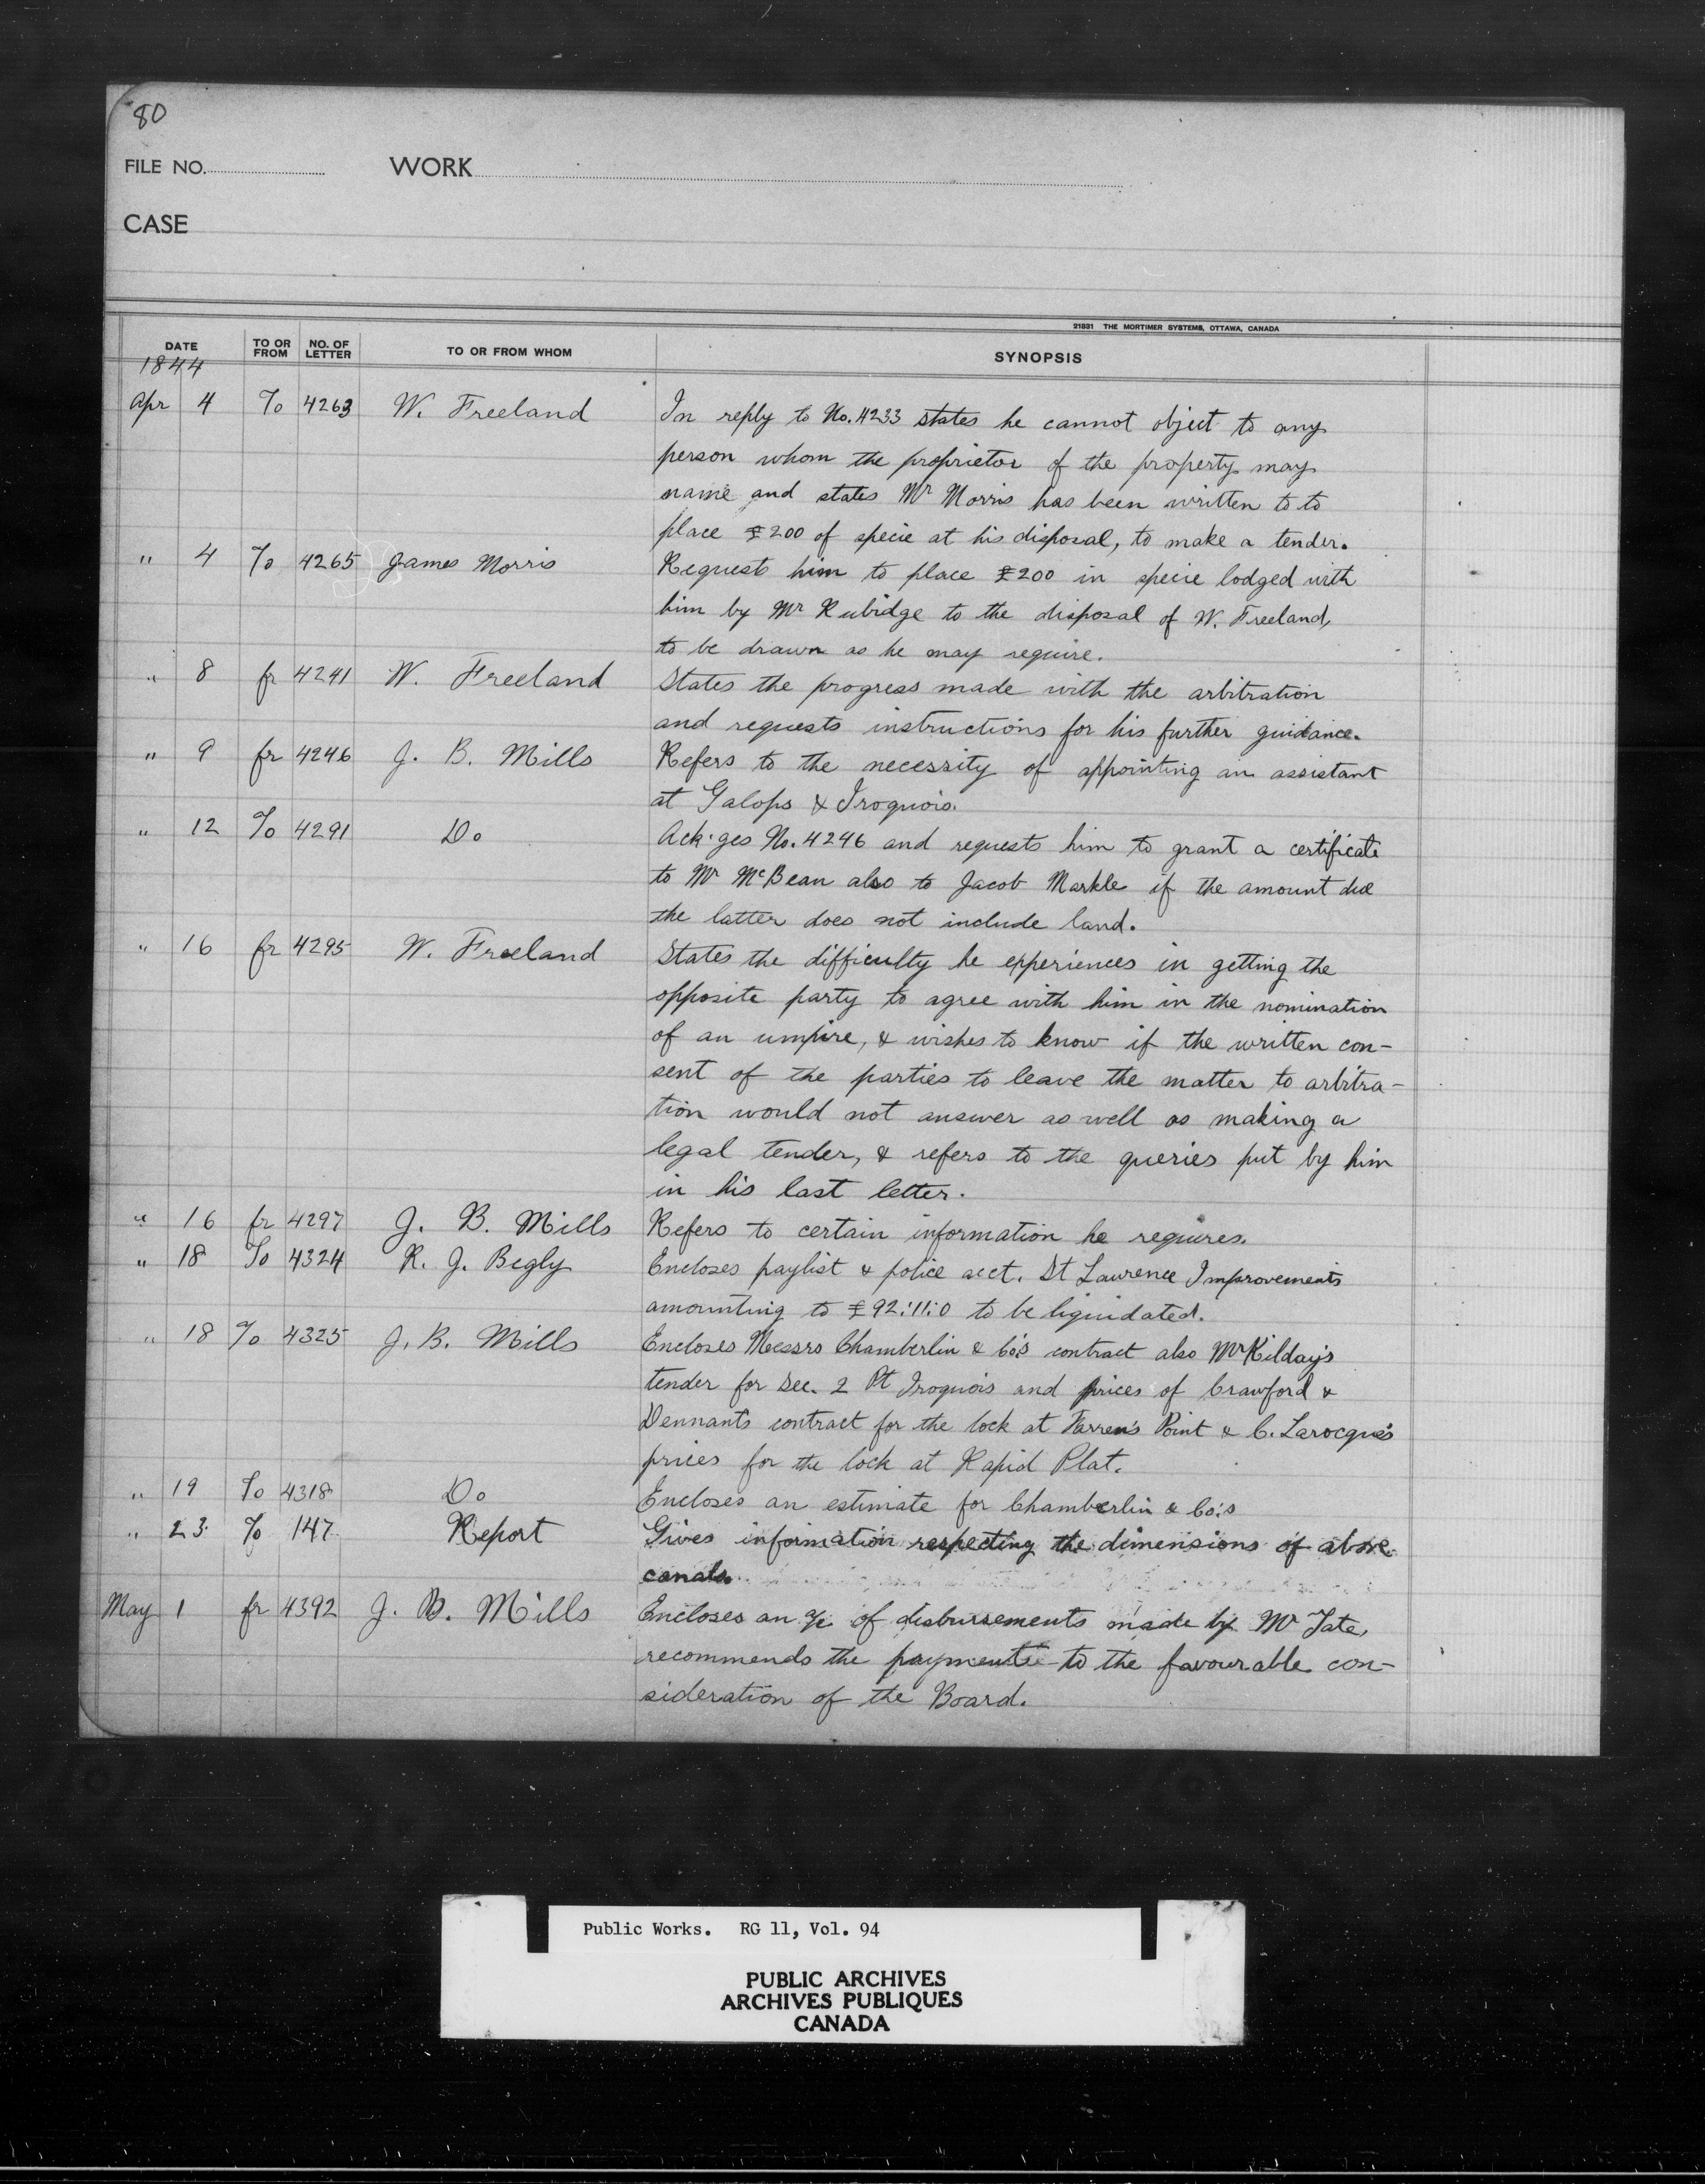 80
FILE NO. WORK
CASE
21831 THE MORTIMER SYSTEMS, OTTAWA, CANADA
DATE TO OR FROM NO. OF LETTER TO OR FROM WHOM SYNOPSIS
1844
Apr 4 To 4263 W. Freeland In reply to No. 4233 states he cannot object to any
person whom the proprietor of the property may
name and states Mr Morris has been written to to
place £200 of specie at his disposal, to make a tender.
" 4 To 4265 James Morris Request him to place £200 in specie lodged with
him by Mr Rubidge to the disposal of W. Freeland,
to be drawn as he may require.
" 8 fr 4241 W. Freeland States the progress made with the arbitration
and requests instructions for his further guidance.
" 9 fr 4246 J. B. Mills Refers to the necessity of appointing an assistant
at Galops & Iroquois.
" 12 To 4291 Do Ack·ges No. 4246 and requests him to grant a certificate
to Mr McBean also to Jacob Markle if the amount due
the latter does not include land.
" 16 fr 4295 W. Freeland States the difficulty he experiences in getting the
opposite party to agree with him in the nomination
of an umpire, & wishes to know if the written con-
sent of the parties to leave the matter to arbitra-
tion would not answer as well as making a
legal tender, & refers to the queries put by him
in his last letter.
" 16 fr 4297 J. B. Mills Refers to certain information he requires.
" 18 To 4324 R. J. Begly Encloses paylist & police acct. St Lawrence Improvements
amounting to £92:11:0 to be liquidated.
" 18 To 4325 J. B. Mills Encloses Messrs Chamberlin & Co's contract also Mr Kilday's
tender for Sec. 2 Pt Iroquois and prices of Crawford &
Dennant's contract for the lock at Farren's Point & C. Larocque's
prices for the lock at Rapid Plat.
" 19 To 4318 Do Encloses an estimate for Chamberlin & Co's
" 23 To 147 Report Gives information respecting the dimensions of above
canals.
May 1 fr 4392 J. B. Mills Encloses an a/c of disbursements made by Mr Tate,
recommends the payment to the favourable con-
sideration of the Board.
Public Works. RG 11, Vol. 94
PUBLIC ARCHIVES
ARCHIVES PUBLIQUES
CANADA